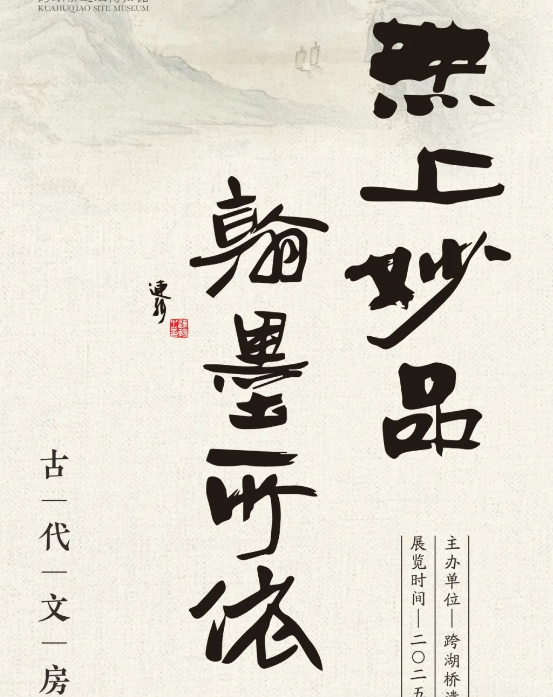 KUAHUQIAO SITE MUSEUM
無上妙品
翰墨所依
古代文房
主办单位—跨湖桥遗
展览时间—二〇二五